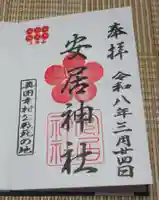 奉拝
令和八年三月廿四日
安居神社
真田幸村公終焉の地